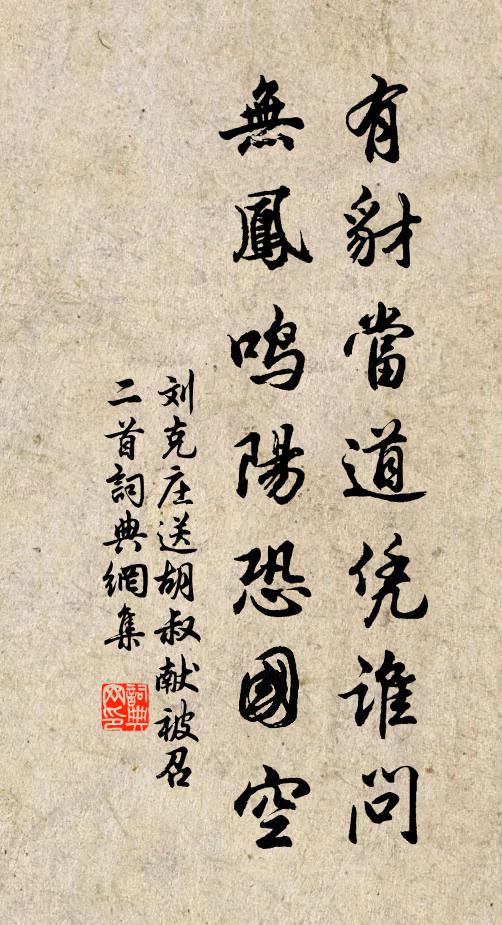 有豺當道凭谁問
無鳳鸣陽恐國空
刘克庄送胡叔献被召
二首詞典網集
詞典
网印